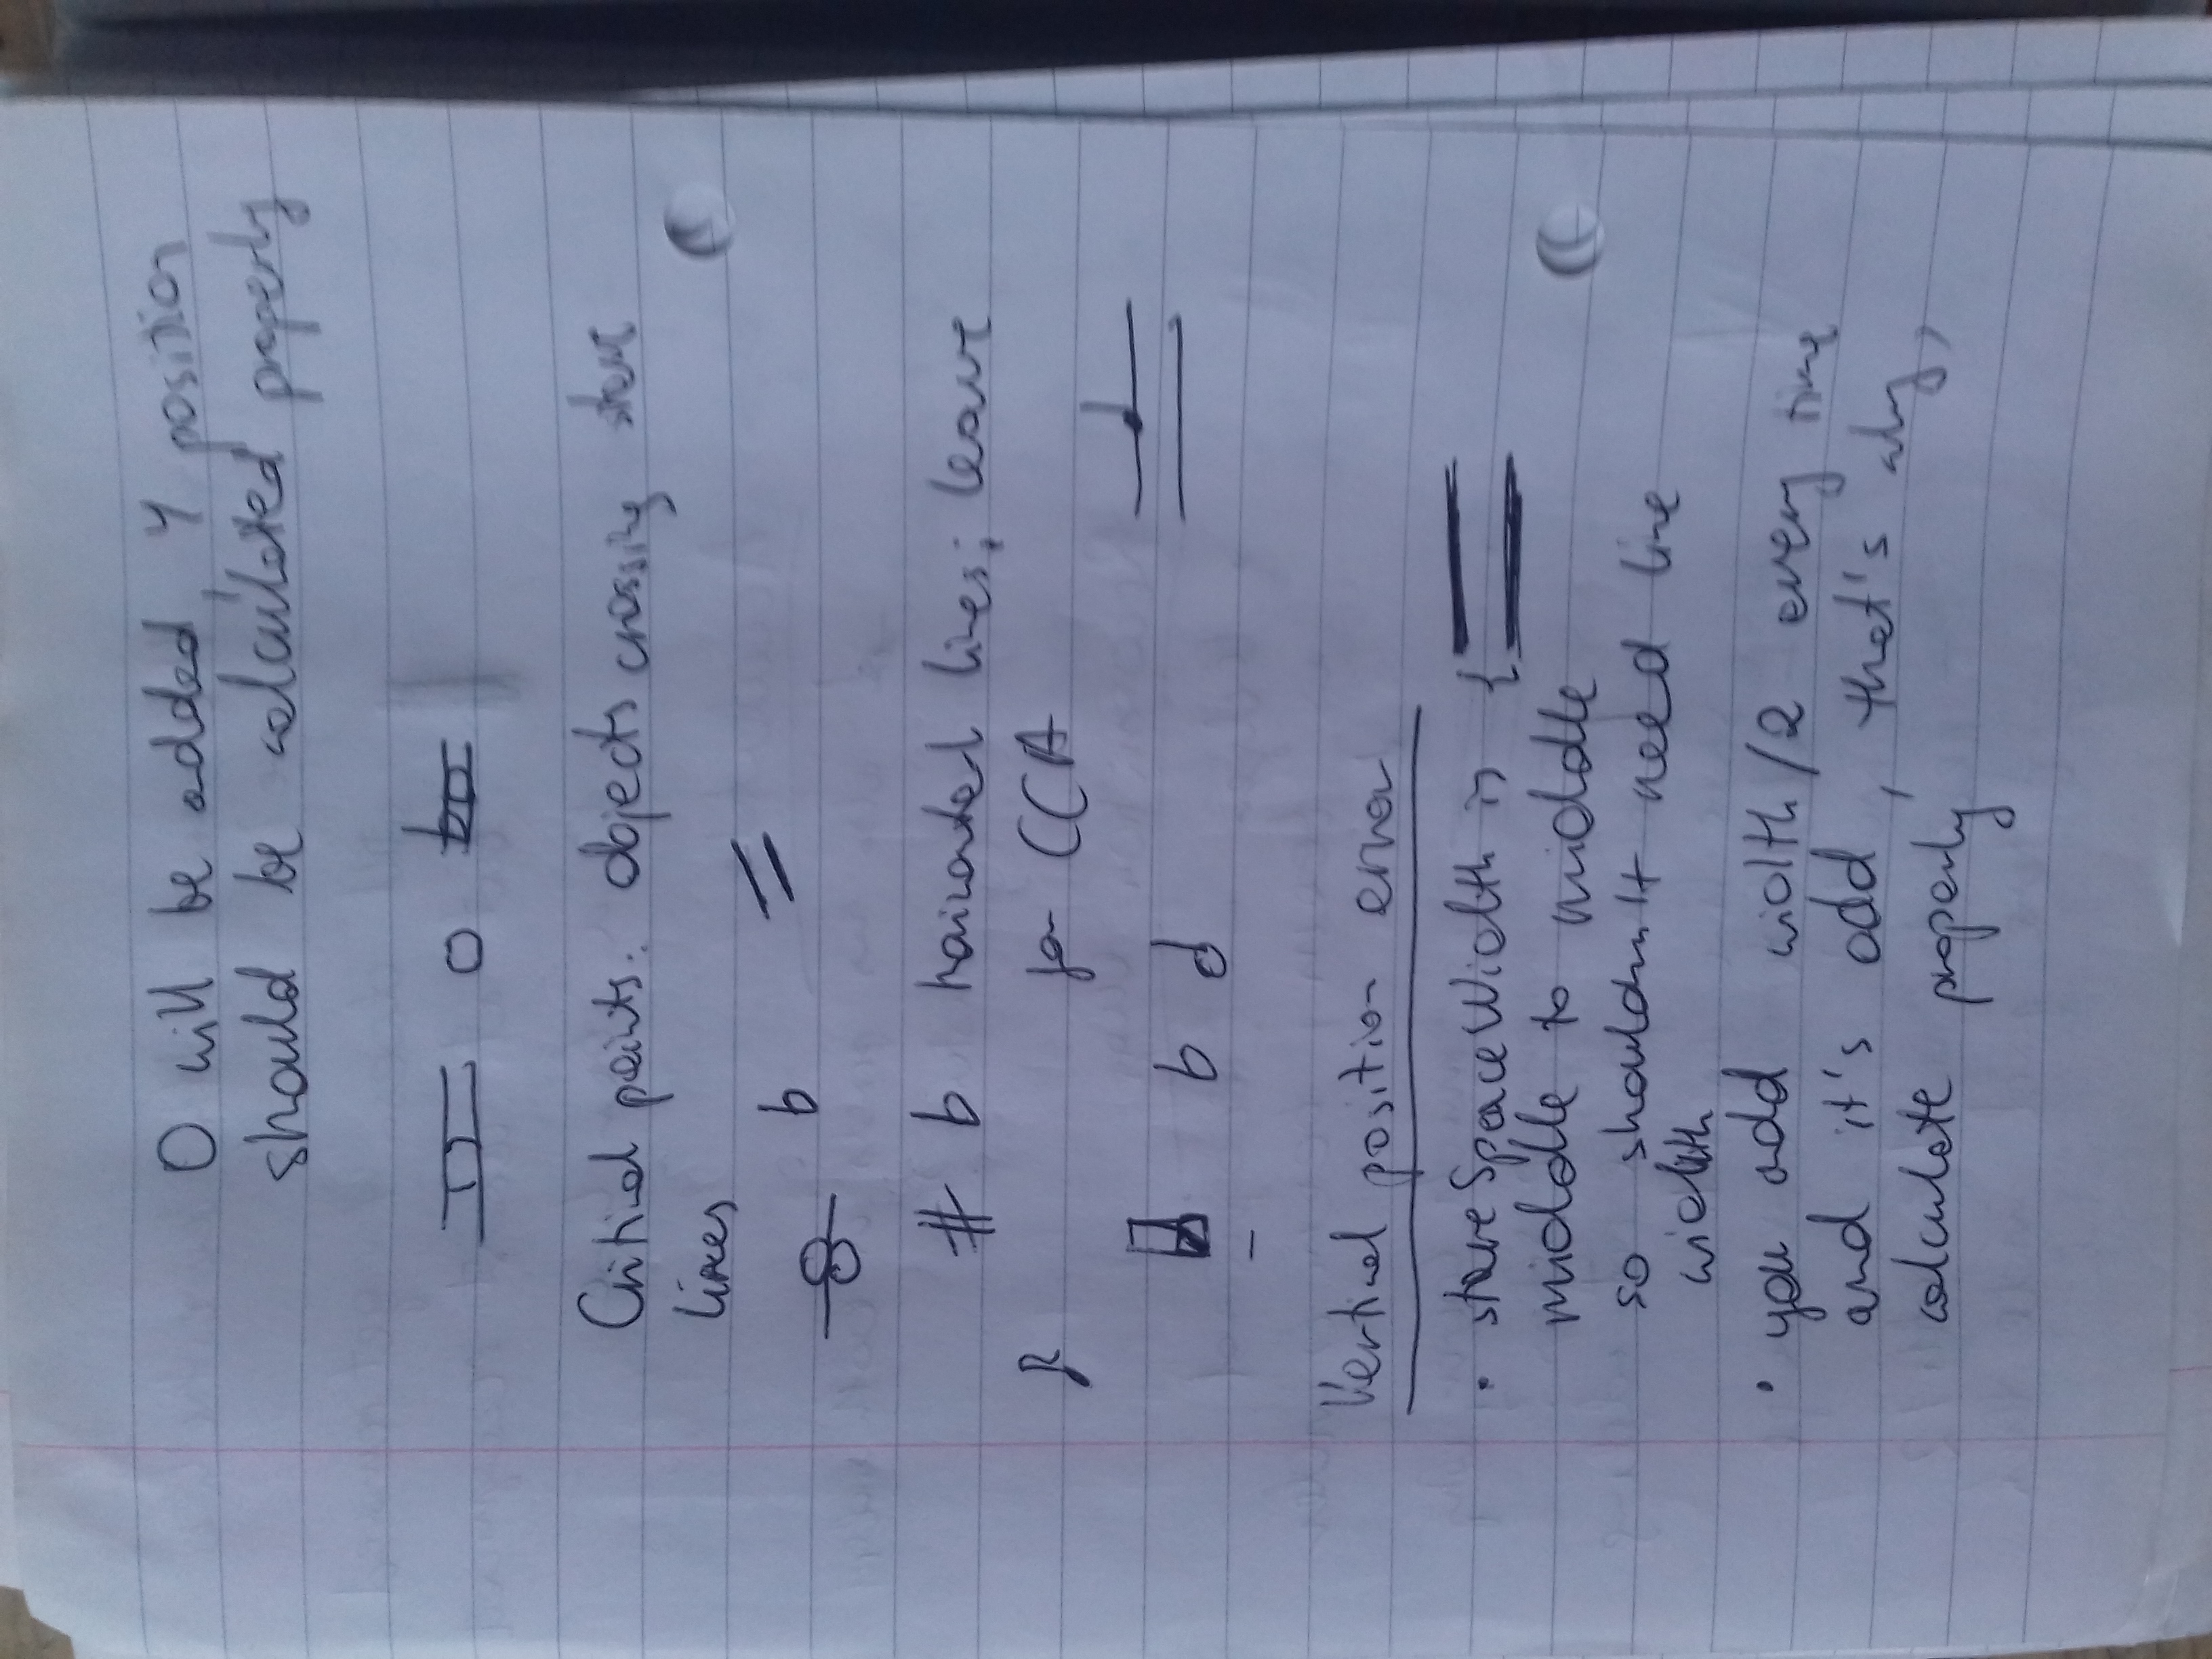 O will be added, Y position
should be calculated properly
Critical points: objects crossing stave
lines
b
# b horizontal lines; leave
for CCA
b d
Vertical position error
• staveSpaceWidth is {
middle to middle
so shouldn't need line
width
• you add width/2 every time
and it's odd, that's why,
calculate properly